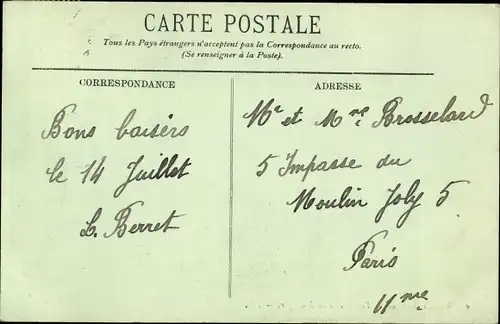 CARTE POSTALE
Tous les Pays étrangers n'acceptent pas la Correspondance au recto.
(Se renseigner à la Poste).
CORRESPONDANCE
Bons baisers
le 14 Juillet
L. Berret
ADRESSE
Mr et Mme Brosselard
5 Impasse du
Moulin Joly 5
Paris
11me